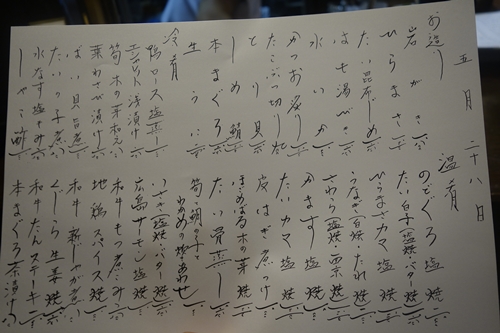 五月二十八日
お造り
岩がき
ひらまさ
たい昆布じめ
はも湯がき
水いか
かつお造り
たこぶつ切り
とり貝
しめ鯖
本まぐろ
生うに
冷肴
鴨ロース塩蒸し
浅漬け
筍木の芽和え
葉わさび漬け
ばい貝旨煮
たいの子煮
水なす塩もみ
しゃこ酢
温肴
のどぐろ 塩焼
たい白子 塩焼 バター焼
ひらまさカマ 塩焼
うなぎ 白焼 たれ焼
さわら 塩焼 西京焼
かます 塩焼
たいカマ 塩焼
皮はぎ煮つけ
木の芽焼
たい骨蒸し
筍と鯛の子と
わかめの炊あわせ
いさき 塩焼 バター焼
広島サーモン塩焼
和牛もつ煮こみ
地鶏スパイス焼
和牛と新じゃが煮
くじら生姜焼
和牛たんステーキ
本まぐろ茶漬け